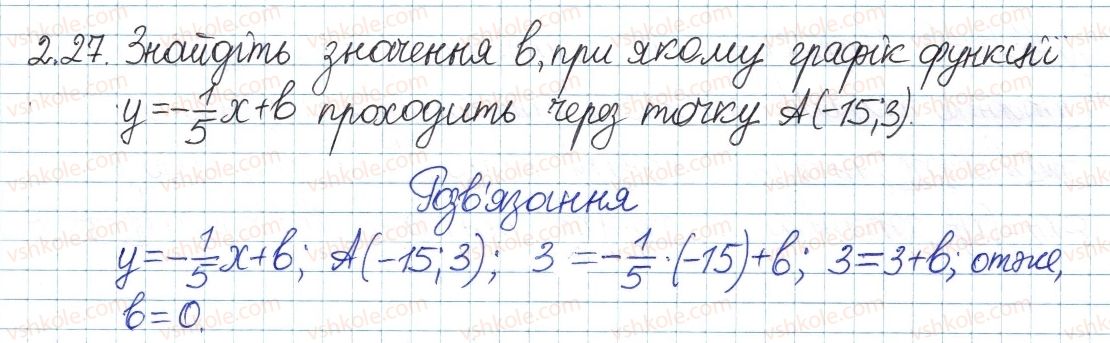 2.27. Знайдіть значення b, при якому графік функції
y = -1/5 x + b проходить через точку A(-15; 3).
Розв'язання
y = -1/5 x + b; A(-15; 3); 3 = -1/5 · (-15) + b; 3 = 3 + b; отже,
b = 0.